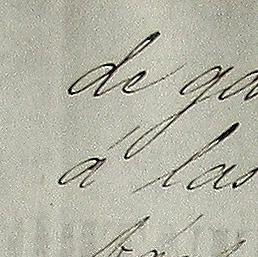 de ga
á las